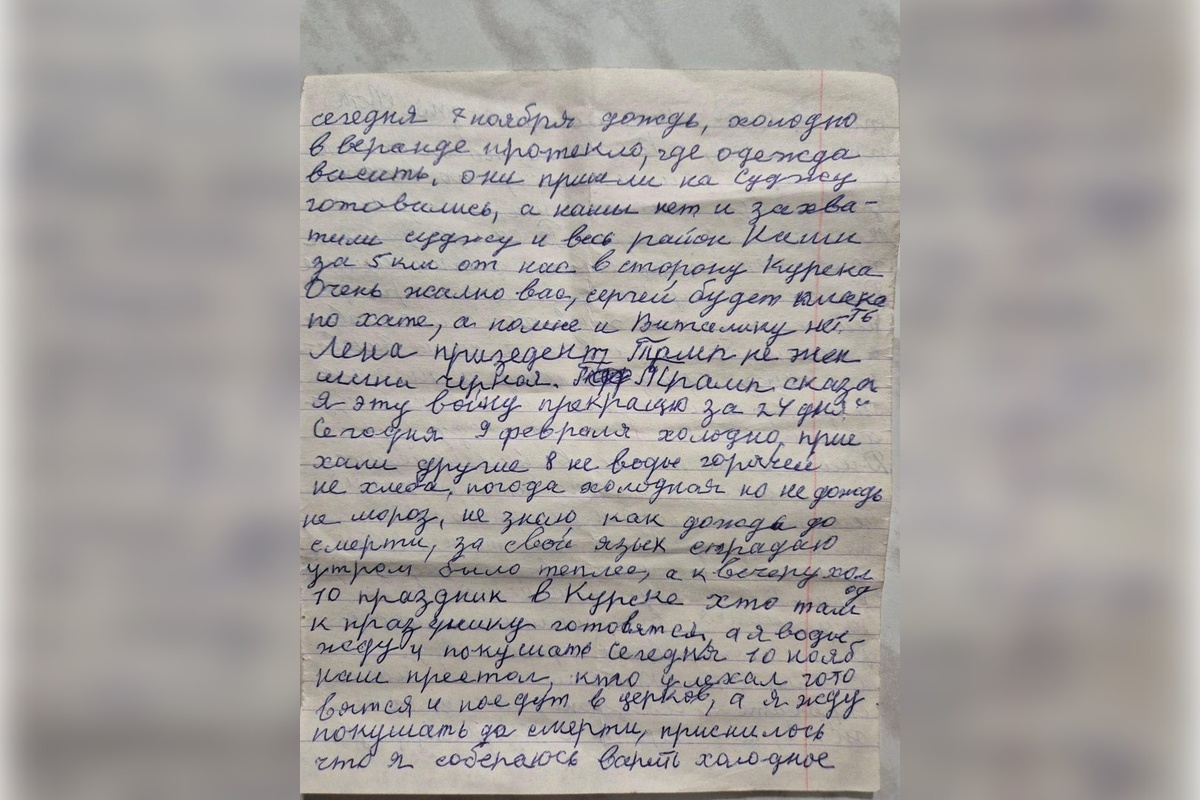 сегедня 7 ноября дождь, холодно
в веранде протекло, где одежда
висить, они пришли на Суджу
готовились, а наши нет и захва-
тили суджу и весь район Наши
за 5 км от нас в сторону Курска
Очень жално вас, сергей будет плака
ть
по хате, а помне и Виталику нет.
Лена призедент Трамп не жен
шина черная. Трамп сказа
Я эту войну прекращю за 24 дня"
Сегодня 9 февраля холодно, прие
хали другие 8 не воды горячей
не хлеба, погода холодная но не дождь
не мороз, не знаю как дожда до
смерти, за свой язык страдаю
утром было теплее, а к вечеру хол
од
10 праздник в Курске хто там
к празднику готовятся, а я воды
жду и покушать Сегедня 10 нояб
наш престол, кто уехал гото
вятся и поедут в церков, а я жду
покушать до смерти, приснилось
что я собераюсь варить холодное